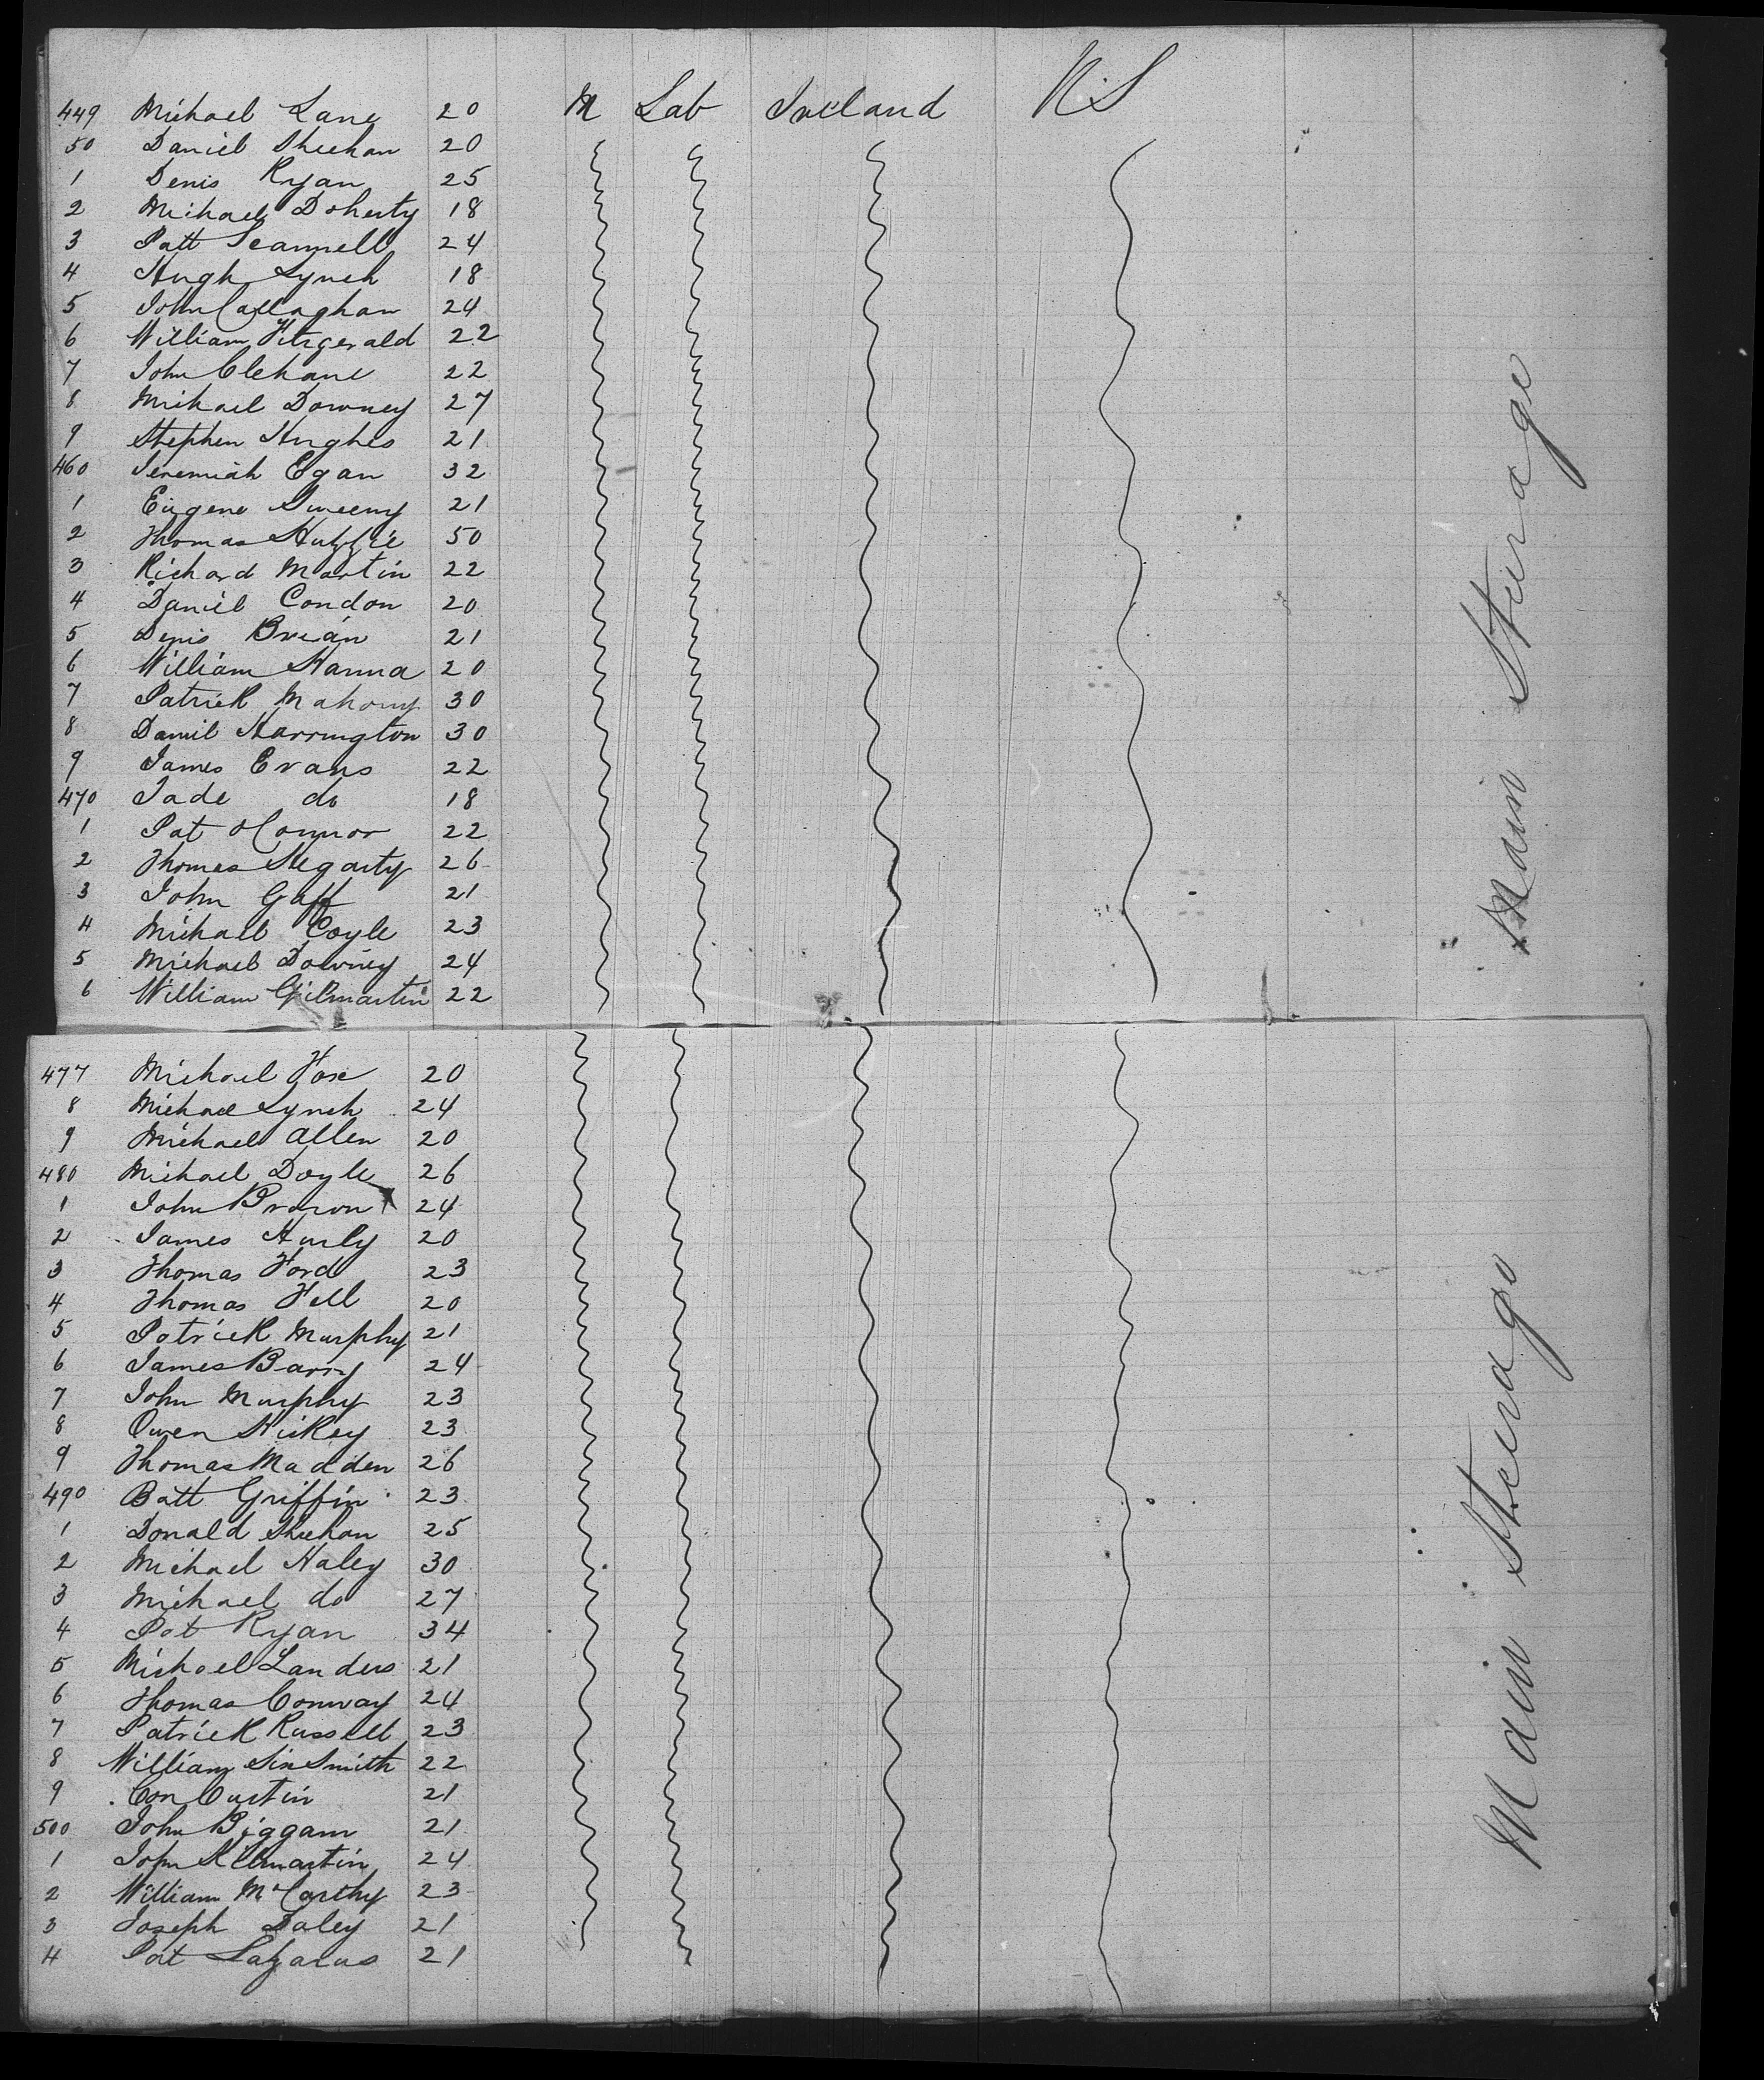 449 Michael Lane 20 M Lab Ireland US
50 Daniel Sheehan 20
1 Denis Ryan 25
2 Michael Doherty 18
3 Patt Scannell 24
4 Hugh Lynch 18
5 John Callaghan 24
6 William Fitzgerald 22
7 John Clehane 22
8 Michael Downey 27
9 Stephen Hughes 21
460 Jeremiah Egan 32
1 Eugene Sweeny 21
2 Thomas 50
3 Richard Martin 22
4 Daniel Condon 20
5 Denis Brian 21
6 William Hanna 20
7 Patrick Mahony 30
8 Daniel Harrington 30
9 James Evans 22
470 Jade do 18
1 Pat OConnor 22
2 Thomas Hegarty 26
3 John Gaff 21
4 Michael Coyle 23
5 Michael Downey 24
6 William Gilmartin 22
Main Steerage
477 Michael Fox 20
8 Michael Lynch 24
9 Michael Allen 20
480 Michael Doyle 26
1 John Brown 24
2 James Hurly 20
3 Thomas Ford 23
4 Thomas Fell 20
5 Patrick Murphy 21
6 James Barry 24
7 John Murphy 23
8 Owen Hickey 23
9 Thomas Madden 26
490 Batt Griffin 23
1 Donald Sheehan 25
2 Michael Haley 30
3 Michael do 27
4 Pat Ryan 34
5 Michael Landers 21
6 Thomas Conway 24
7 Patrick Russell 23
8 William SinSmith 22
9 Con Curtin 21
500 John Biggam 21
1 John Kilmartin 24
2 William McCarthy 23
3 Joseph Daley 21
4 Pat Lazarus 21
Main Steerage